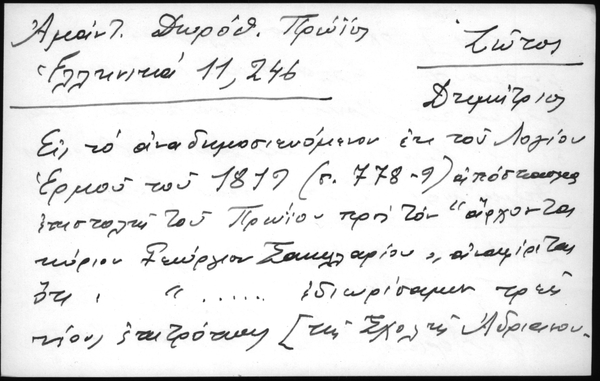 Ἀμάντ. Δωρόθ. Πρώϊος
Ζῶτος
Ἑλληνικά 11, 246
Δημήτριος
Εἰς τό ἀναδημοσιευόμενον ἐκ τοῦ Λογίου
Ἑρμοῦ τοῦ 1819 (σ. 778-9) ἀπόσπασμα
ἐπιστολῆς τοῦ Πρωίου πρός τόν "ἄρχοντα
κύριον Γεώργιον Σακελλαρίου", ἀναφέρεται
ὅτι : " ...... ἐδιωρίσαμεν τρεῖς
νέους ἐπιτρόπους [τῆς Σχολῆς Ἀδριανου-